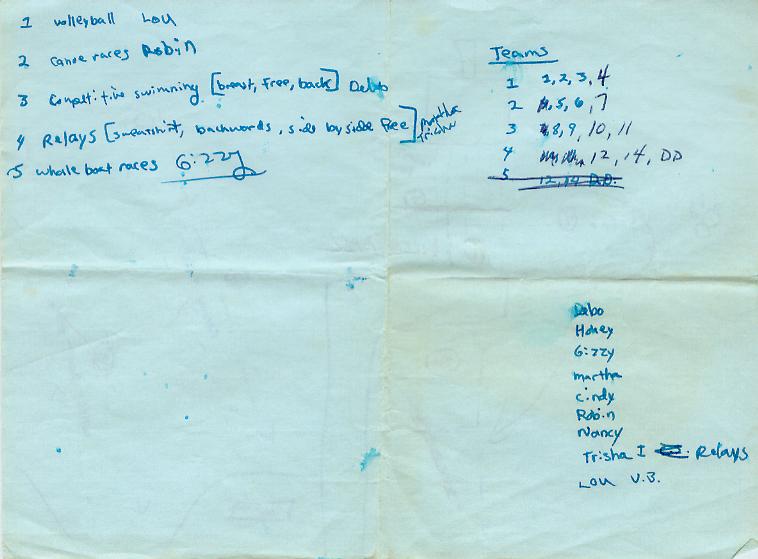 1 volleyball Lou
2 Canoe races Robin
3 Competitive swimming [breast, free, back] Debo
4 Relays [sweatshirt, backwords, side by side free] Martha Trisha
5 whale boat races Gizzy
Teams
1 1, 2, 3, 4
2 5, 6, 7
3 8, 9, 10, 11
4 12, 14, DD
5 12, 14 D.D.
Debo
Honey
Gizzy
martha
cindy
Robin
Nancy
Trisha I Relays
Lou V.B.